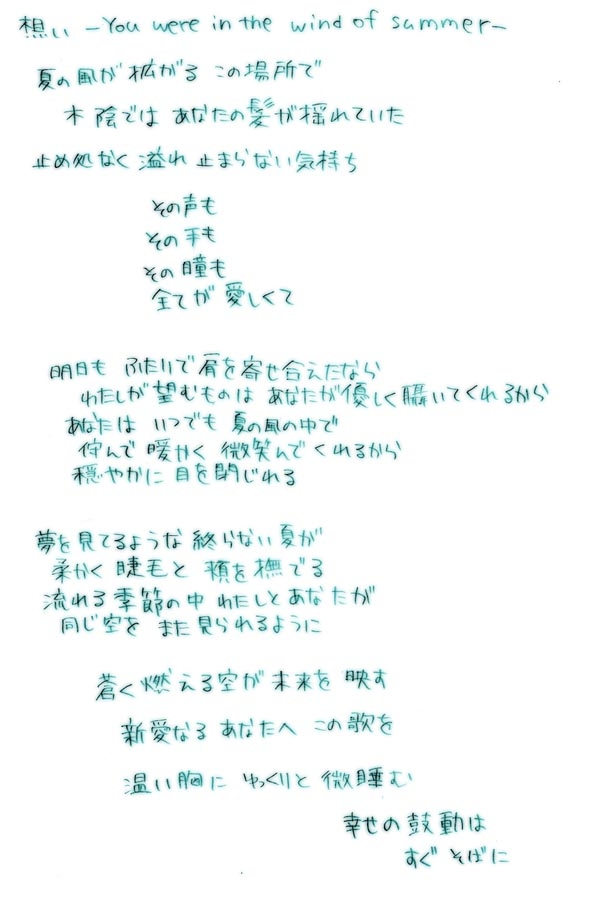 想い -You were in the wind of summer-
夏の風が拡がる この場所で
木陰では あなたの髪が揺れていた
止め処なく溢れ 止まらない気持ち
その声も
その手も
その瞳も
全てが愛しくて
明日も ふたりで肩を寄せ合えたなら
わたしが望むものは あなたが優しく囁いてくれるから
あなたは いつでも 夏の風の中で
佇んで 暖かく 微笑んでくれるから
穏やかに目を閉じれる
夢を見てるような 終らない夏が
柔かく 睫毛と 頬を撫でる
流れる季節の中 わたしとあなたが
同じ空を また見られるように
蒼く燃える空が 未来を 映す
新愛なる あなたへ この歌を
温い胸に ゆっくりと 微睡む
幸せの鼓動は
すぐ そばに